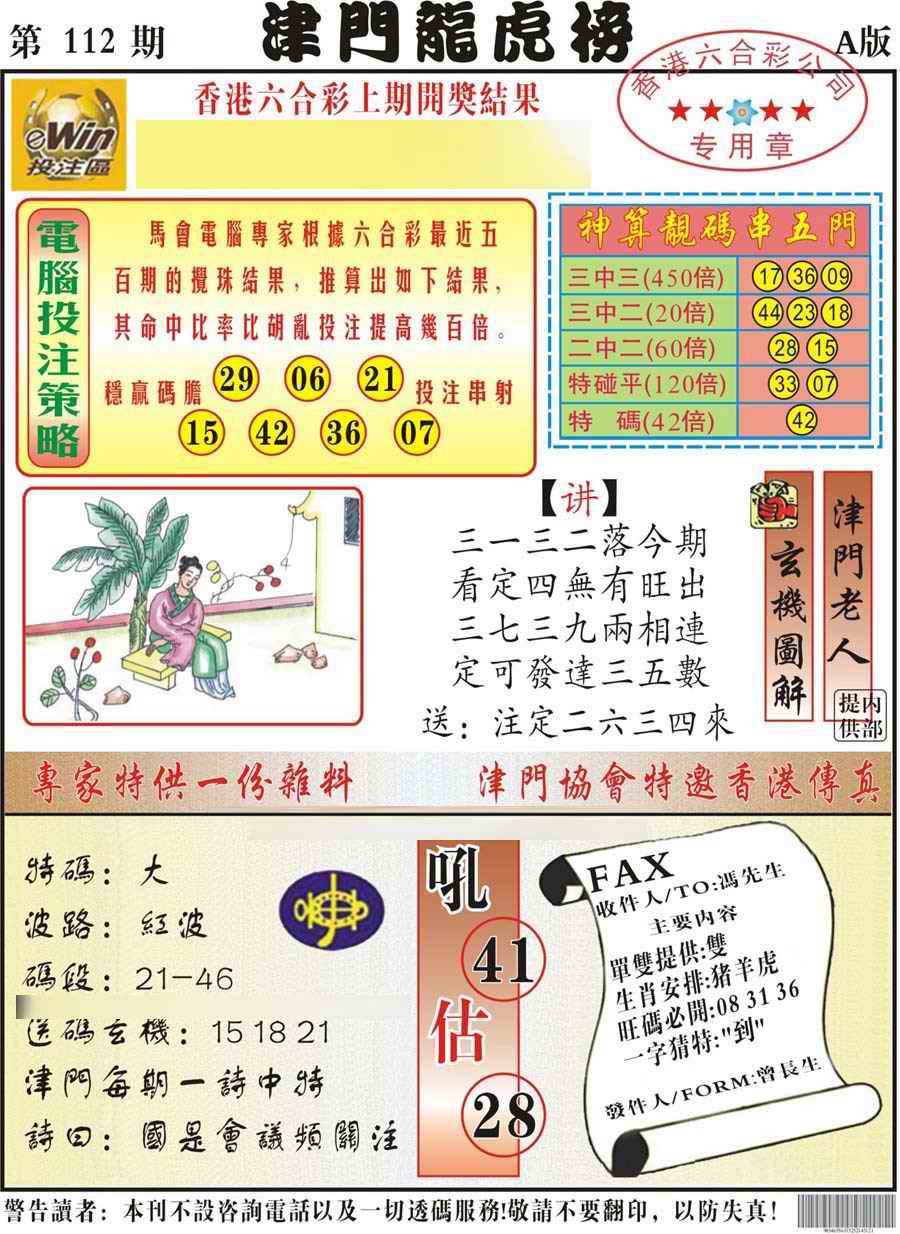 第 112 期
津門龍虎榜
A版
香港六合彩公司
专用章
eWin
投注區
香港六合彩上期開獎結果
電腦投注策略
馬會電腦專家根據六合彩最近五
百期的攪珠結果，推算出如下結果，
其命中比率比胡亂投注提高幾百倍。
穩贏碼膽 29 06 21 投注串射
15 42 36 07
神算靚碼串五門
三中三(450倍) 17 36 09
三中二(20倍) 44 23 18
二中二(60倍) 28 15
特碰平(120倍) 33 07
特 碼(42倍) 42
【讲】
三一三二落今期
看定四無有旺出
三七三九兩相連
定可發達三五數
送：注定二六三四來
玄機圖解
津門老人
内部提供
專家特供一份雜料
津門協會特邀香港傳真
特碼：大
波路：紅波
碼段：21-46
送碼玄機：15 18 21
津門每期一詩中特
詩曰：國是會議頻關注
吼
41
估
28
FAX
收件人/TO:馮先生
主要内容
單雙提供:雙
生肖安排:猪羊虎
旺碼必開:08 31 36
一字猜特:"到"
發件人/FORM:曾長生
警告讀者：本刊不設咨詢電話以及一切透碼服務!敬請不要翻印，以防失真!